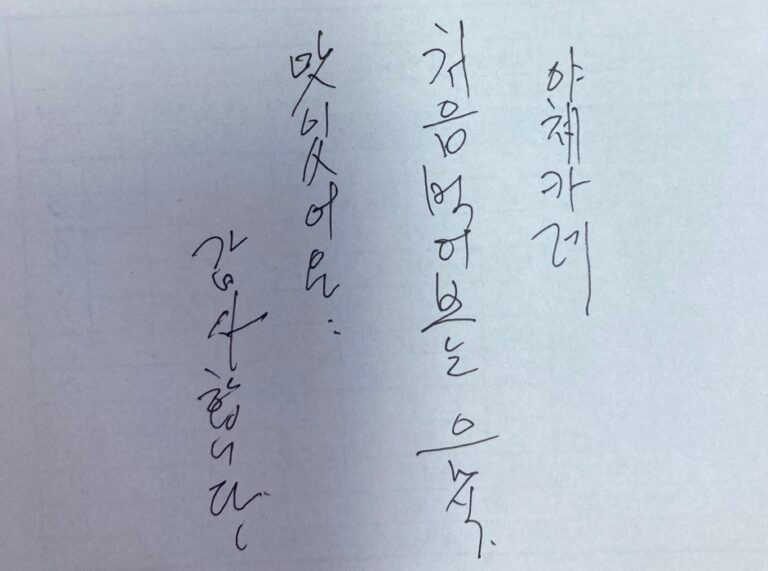 야채카레
처음 먹어보는 음식.
맛있어요.
감사합니다.